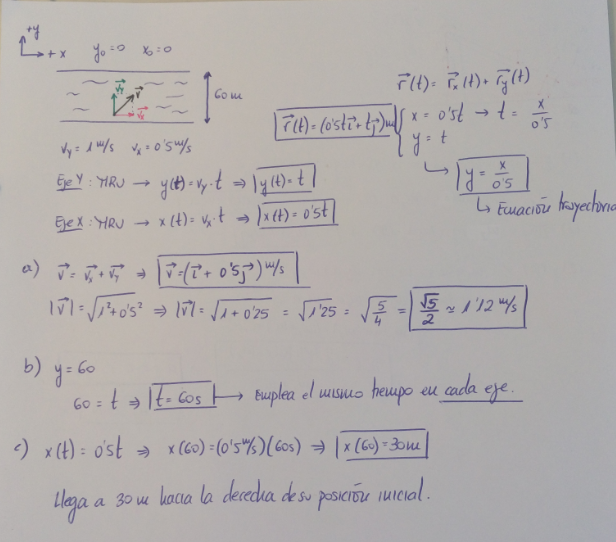 +y
+x y₀=0 x₀=0
60m
v⃗y v⃗ v⃗x
vy = 1 m/s vx = 0'5 m/s
Eje Y: MRU → y(t) = vy·t ⇒ y(t) = t
Eje X: MRU → x(t) = vx·t ⇒ x(t) = 0'5t
r⃗(t) = r⃗x(t) + r⃗y(t)
r⃗(t) = (0'5t i⃗ + t j⃗) m { x = 0'5t → t = x/0'5
y = t
y = x/0'5
↳ Ecuación trayectoria
a) v⃗ = v⃗x + v⃗y ⇒ v⃗ = (i⃗ + 0'5j⃗) m/s
|v⃗| = √1²+0'5² ⇒ |v⃗| = √1+0'25 = √1'25 = √5/4 = √5/2 ≃ 1'12 m/s
b) y = 60
60 = t ⇒ t = 60s → Emplea el mismo tiempo en cada eje.
c) x(t) = 0'5t ⇒ x(60) = (0'5 m/s)(60s) ⇒ x(60) = 30m
Llega a 30m hacia la derecha de su posición inicial.